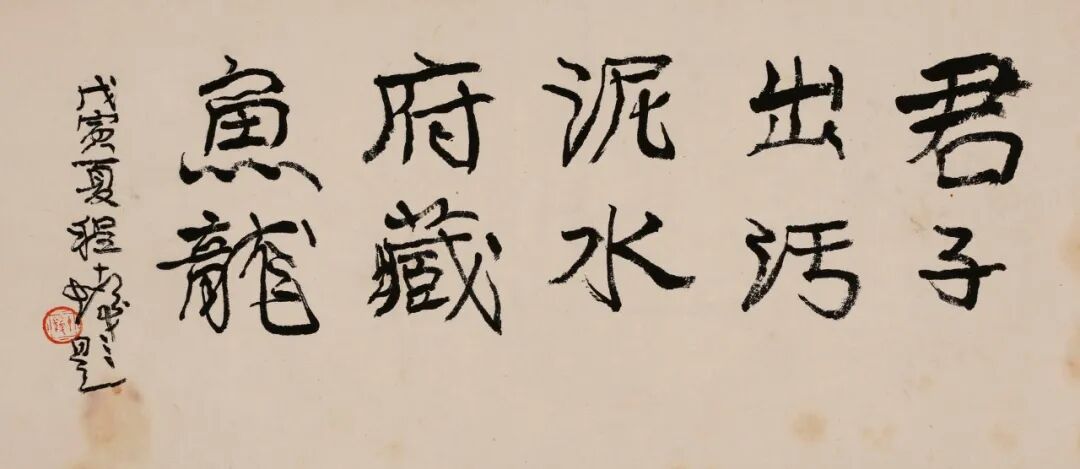 君子
出污
泥水
府藏
魚龍
戊寅夏程十髮題